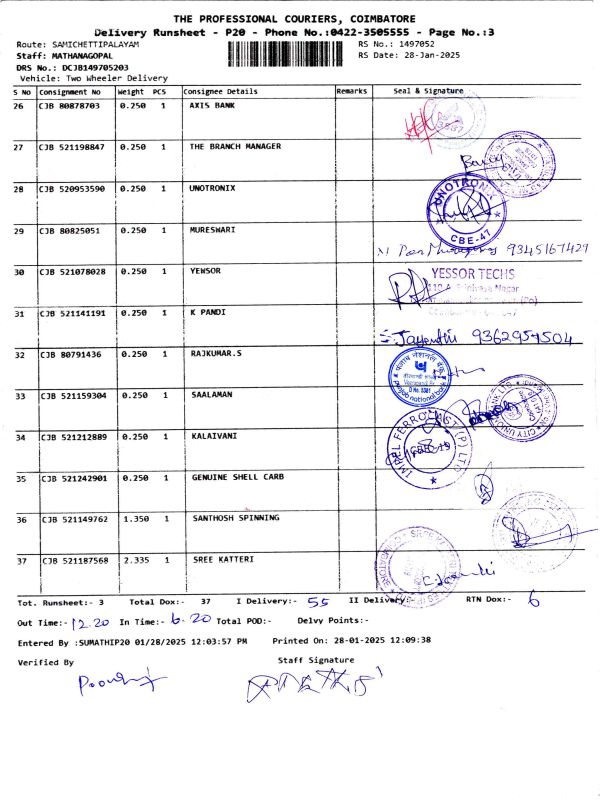 THE PROFESSIONAL COURIERS, COIMBATORE
Delivery Runsheet - P20 - Phone No.:0422-3505555 - Page No.:3
Route: SAMICHETTIPALAYAM RS No.: 1497052
Staff: MATHANAGOPAL RS Date: 28-Jan-2025
DRS No.: DCJB149705203
Vehicle: Two Wheeler Delivery
S No Consignment No Weight PCS Consignee Details Remarks Seal & Signature
26 CJB 80878703 0.250 1 AXIS BANK
27 CJB 521198847 0.250 1 THE BRANCH MANAGER
28 CJB 520953590 0.250 1 UNOTRONIX
UNOTRONIX
CBE-47
29 CJB 80825051 0.250 1 MURESWARI
9345167429
30 CJB 521078028 0.250 1 YEWSOR
YESSOR TECHS
31 CJB 521141191 0.250 1 K PANDI
S. Jayanthi 9362957504
32 CJB 80791436 0.250 1 RAJKUMAR.S
punjab national bank
33 CJB 521159304 0.250 1 SAALAMAN
34 CJB 521212889 0.250 1 KALAIVANI
35 CJB 521242901 0.250 1 GENUINE SHELL CARB
36 CJB 521149762 1.350 1 SANTHOSH SPINNING
37 CJB 521187568 2.335 1 SREE KATTERI
Tot. Runsheet:- 3 Total Dox:- 37 I Delivery:- 55 II Delivery:- RTN Dox:- 6
Out Time:- 12.20 In Time:- 6.20 Total POD:- Delvy Points:-
Entered By :SUMATHIP20 01/28/2025 12:03:57 PM Printed On: 28-01-2025 12:09:38
Verified By Staff Signature